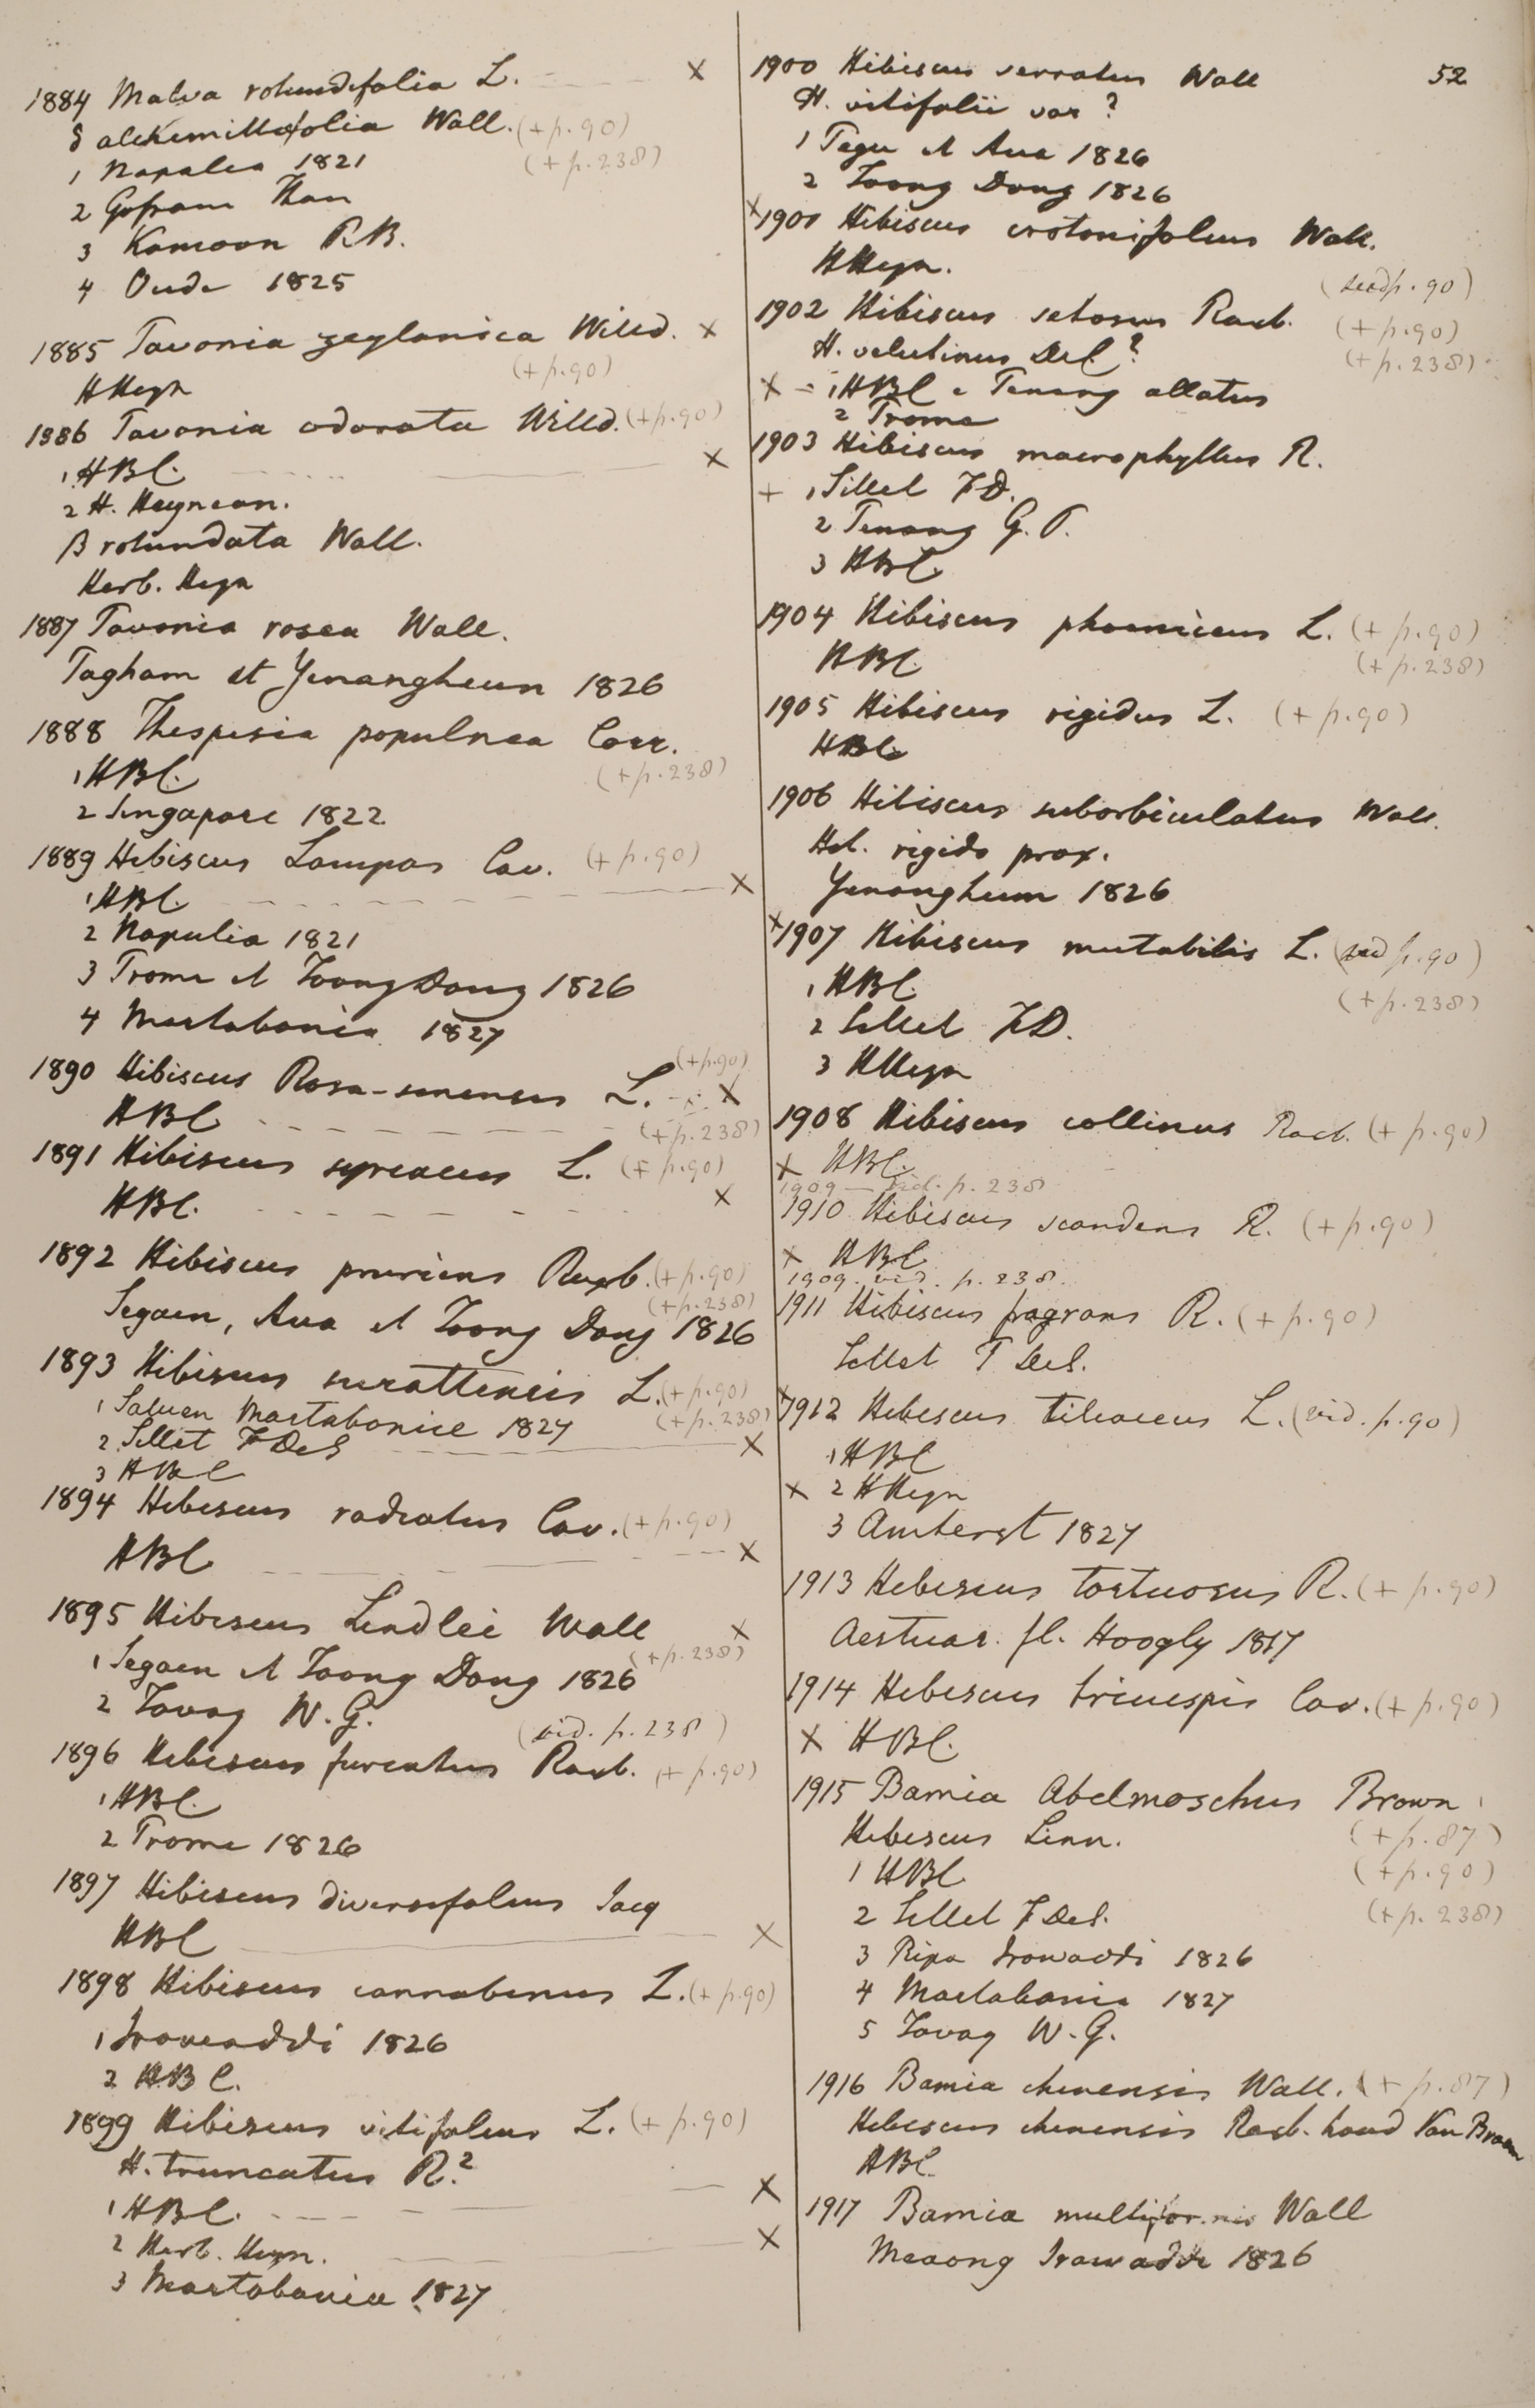 52
1884 Malva rotundifolia L. X
β alchemillæfolia Wall. (+ p. 90)
1 Napalia 1821 (+ p. 238)
2 Gossam Than
3 Kamoon R.B.
4 Oude 1825
1885 Pavonia zeylanica Willd. X
HHeyn (+ p. 90)
1886 Pavonia odorata Willd. (+ p. 90)
1 HBC. X
2 H. Heynean.
β rotundata Wall.
Herb. Heyn
1887 Pavonia rosea Wall.
Pagham et Yenangheun 1826
1888 Thespesia populnea Corr.
1 HBC. (+ p. 238)
2 Singapore 1822
1889 Hibiscus Lampas Cav. (+ p. 90)
1 HBC. X
2 Napulia 1821
3 Prome et Toong Dong 1826
4 Martabania 1827
(+ p. 90)
1890 Hibiscus Rosa-sinensis L. X
HBC (+ p. 238)
1891 Hibiscus syriacus L. (+ p. 90)
HBC. X
1892 Hibiscus pruriens Roxb. (+ p. 90)
(+ p. 238)
Segaen, Ava et Toong Dong 1826
1893 Hibiscus surattensis L. (+ p. 90)
1 Saluen Martabaniæ 1827 (+ p. 238)
2 Sillet F DeS X
3 HBC
1894 Hibiscus radiatus Cav. (+ p. 90)
HBC X
1895 Hibiscus Lindlei Wall X
1 Segaen et Toong Dong 1826 (+ p. 238)
2 Tavoy W. G.
(vid. p. 238)
1896 Hibiscus furcatus Roxb. (+ p. 90)
1 HBC.
2 Prome 1826
1897 Hibiscus diversifolius Jacq
HBC X
1898 Hibiscus cannabinus L. (+ p. 90)
1 Irowaddi 1826
2 HBC.
1899 Hibiscus vitifolius L. (+ p. 90)
H. truncatus R.? X
1 HBC.
2 Herb. Heyn. X
3 Martabania 1827
1900 Hibiscus serratus Wall
H. vitifolii var?
1 Pegu et Ava 1826
2 Toong Dong 1826
X 1901 Hibiscus crotonifolius Wall.
HHeyn.
(vid p. 90)
1902 Hibiscus setosus Roxb. (+ p. 90)
H. velutinus DeC? (+ p. 238)
X - 1 HBC e Penang allatus
2 Prome
1903 Hibiscus macrophyllus R.
+ 1 Sillet F.D.
2 Penang G. P.
3 HBC.
1904 Hibiscus phoeniceus L. (+ p. 90)
HBC. (+ p. 238)
1905 Hibiscus rigidus L. (+ p. 90)
HBC
1906 Hibiscus suborbiculatus Wall.
Hib. rigido prox.
Yenangheum 1826
X 1907 Hibiscus mutabilis L. (vid p. 90)
1 HBC. (+ p. 238)
2 Sillet F.D.
3 HHeyn
1908 Hibiscus collinus Roxb. (+ p. 90)
X HBC.
1909 — vid. p. 238
1910 Hibiscus scandens R. (+ p. 90)
X HBC
1909. vid. p. 238.
1911 Hibiscus fragrans R. (+ p. 90)
Sillet F DeS.
X 1912 Hibiscus tiliaceus L. (vid. p. 90)
1 HBC
X 2 HHeyn
3 Amherst 1827
1913 Hibiscus tortuosus R. (+ p. 90)
Aestuar. fl. Hoogly 1817
1914 Hibiscus tricuspis Cav. (+ p. 90)
X HBC.
1915 Bamia Abelmoschus Brown
Hibiscus Linn. (+ p. 87)
1 HBC (+ p. 90)
2 Sillet F DeS. (+ p. 238)
3 Ripa Irowaddi 1826
4 Martabania 1827
5 Tavoy W. G.
1916 Bamia chinensis Wall. (+ p. 87)
Hibiscus chinensis Roxb. haud Van Braam
HBC
1917 Bamia multiformis Wall
Meaong Irawaddi 1826